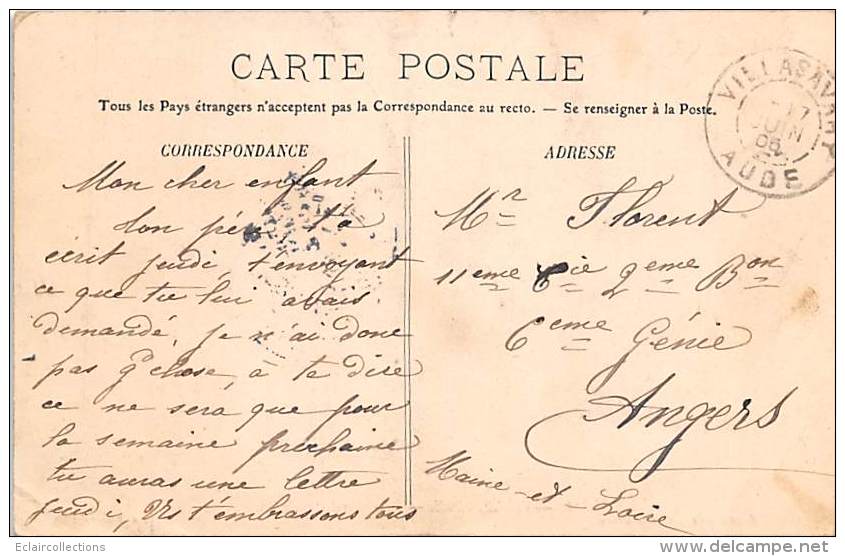 CARTE POSTALE
Tous les Pays étrangers n'acceptent pas la Correspondance au recto. — Se renseigner à la Poste.
CORRESPONDANCE
Mon cher enfant
ton père t'a
écrit jeudi, t'envoyant
ce que tu lui avais
demandé, je n'ai donc
pas Gd chose à te dire
ce ne sera que pour
la semaine prochaine
tu auras une lettre
jeudi, Ns t'embrassons tous
ADRESSE
Mr Florent
11eme Cie 2eme Bon
6eme Génie
Angers
Maine-et-Loire
VILLASAVARY
17
JUIN
06
AUDE
Eclaircollections
delcampe.net